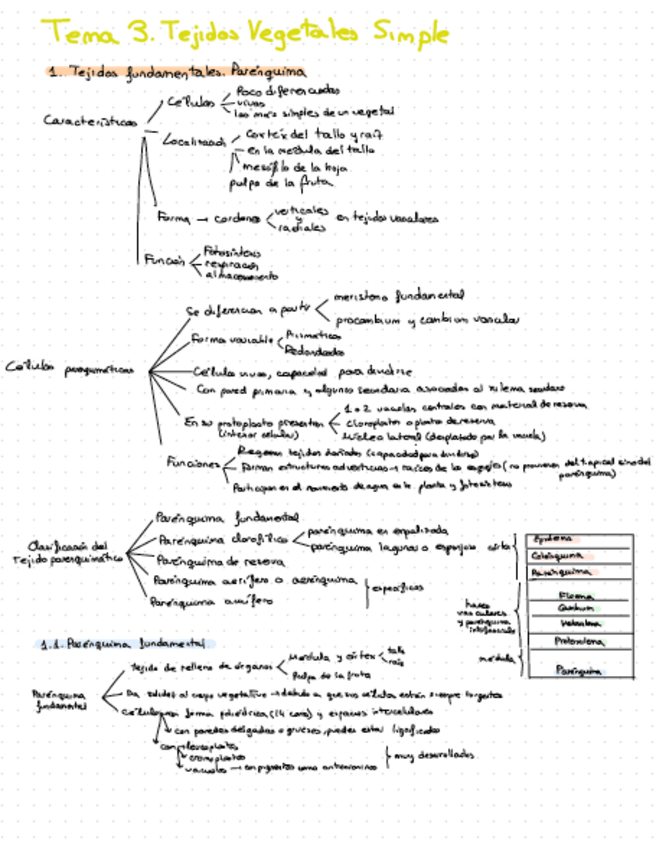 Tema 3. Tejidos Vegetales Simple
1. Tejidos fundamentales. Parénquima
Características
Células
Poco diferenciadas
vivas
las más simples de un vegetal
Localización
Cortex del tallo y raíz
en la medula del tallo
mesófilo de la hoja
pulpa de la fruta
Forma → cordones
verticales
y
radiales
en tejidos vasculares
Función
Fotosíntesis
respiración
almacenamiento
Células parenquimáticas
Se diferencian a partir
meristemo fundamental
procambium y cambium vascular
Forma variable
Prismáticas
Redondeadas
Células vivas, capacidad para dividirse
Con pared primaria y algunas secundaria asociadas al xilema secundario
En su protoplasto presentan
(interior celular)
1 o 2 vacuolas centrales con material de reserva
cloroplastos o plastos de reserva
Núcleo lateral (desplazado por la vacuola)
Funciones
Regeneran tejidos dañados (capacidad para dividirse)
Forman estructuras adventicias → raíces de los esquejes (no provienen del t. apical sino del
parénquima)
Participan en el movimiento de agua en la planta y fotosíntesis
Clasificación del
Tejido parenquimático
Parénquima fundamental
Parénquima clorofílico
parénquima en empalizada
parénquima lagunar o esponjoso
Parénquima de reserva
Parénquima aerífero o aerénquima
Parénquima acuífero
específicos
córtex
haces
vasculares
y parénquima
interfascicular
medula
Epidermis
Colénquima
Parénquima
Floema
Cambium
Metaxilema
Protoxilema
Parénquima
1.1. Parénquima fundamental
Parénquima
fundamental
tejido de relleno de órganos
Medula y córtex
tallo
raíz
Pulpa de la fruta
Da solidez al cuerpo vegetativo → debido a que sus células están siempre turgentes
Células con forma poliédrica (14 caras) y espacios intercelulares
con paredes delgadas o gruesas, puedes estar lignificadas
con
cromoplastos
vacuolas → con pigmentos como antocianinas
muy desarrollados